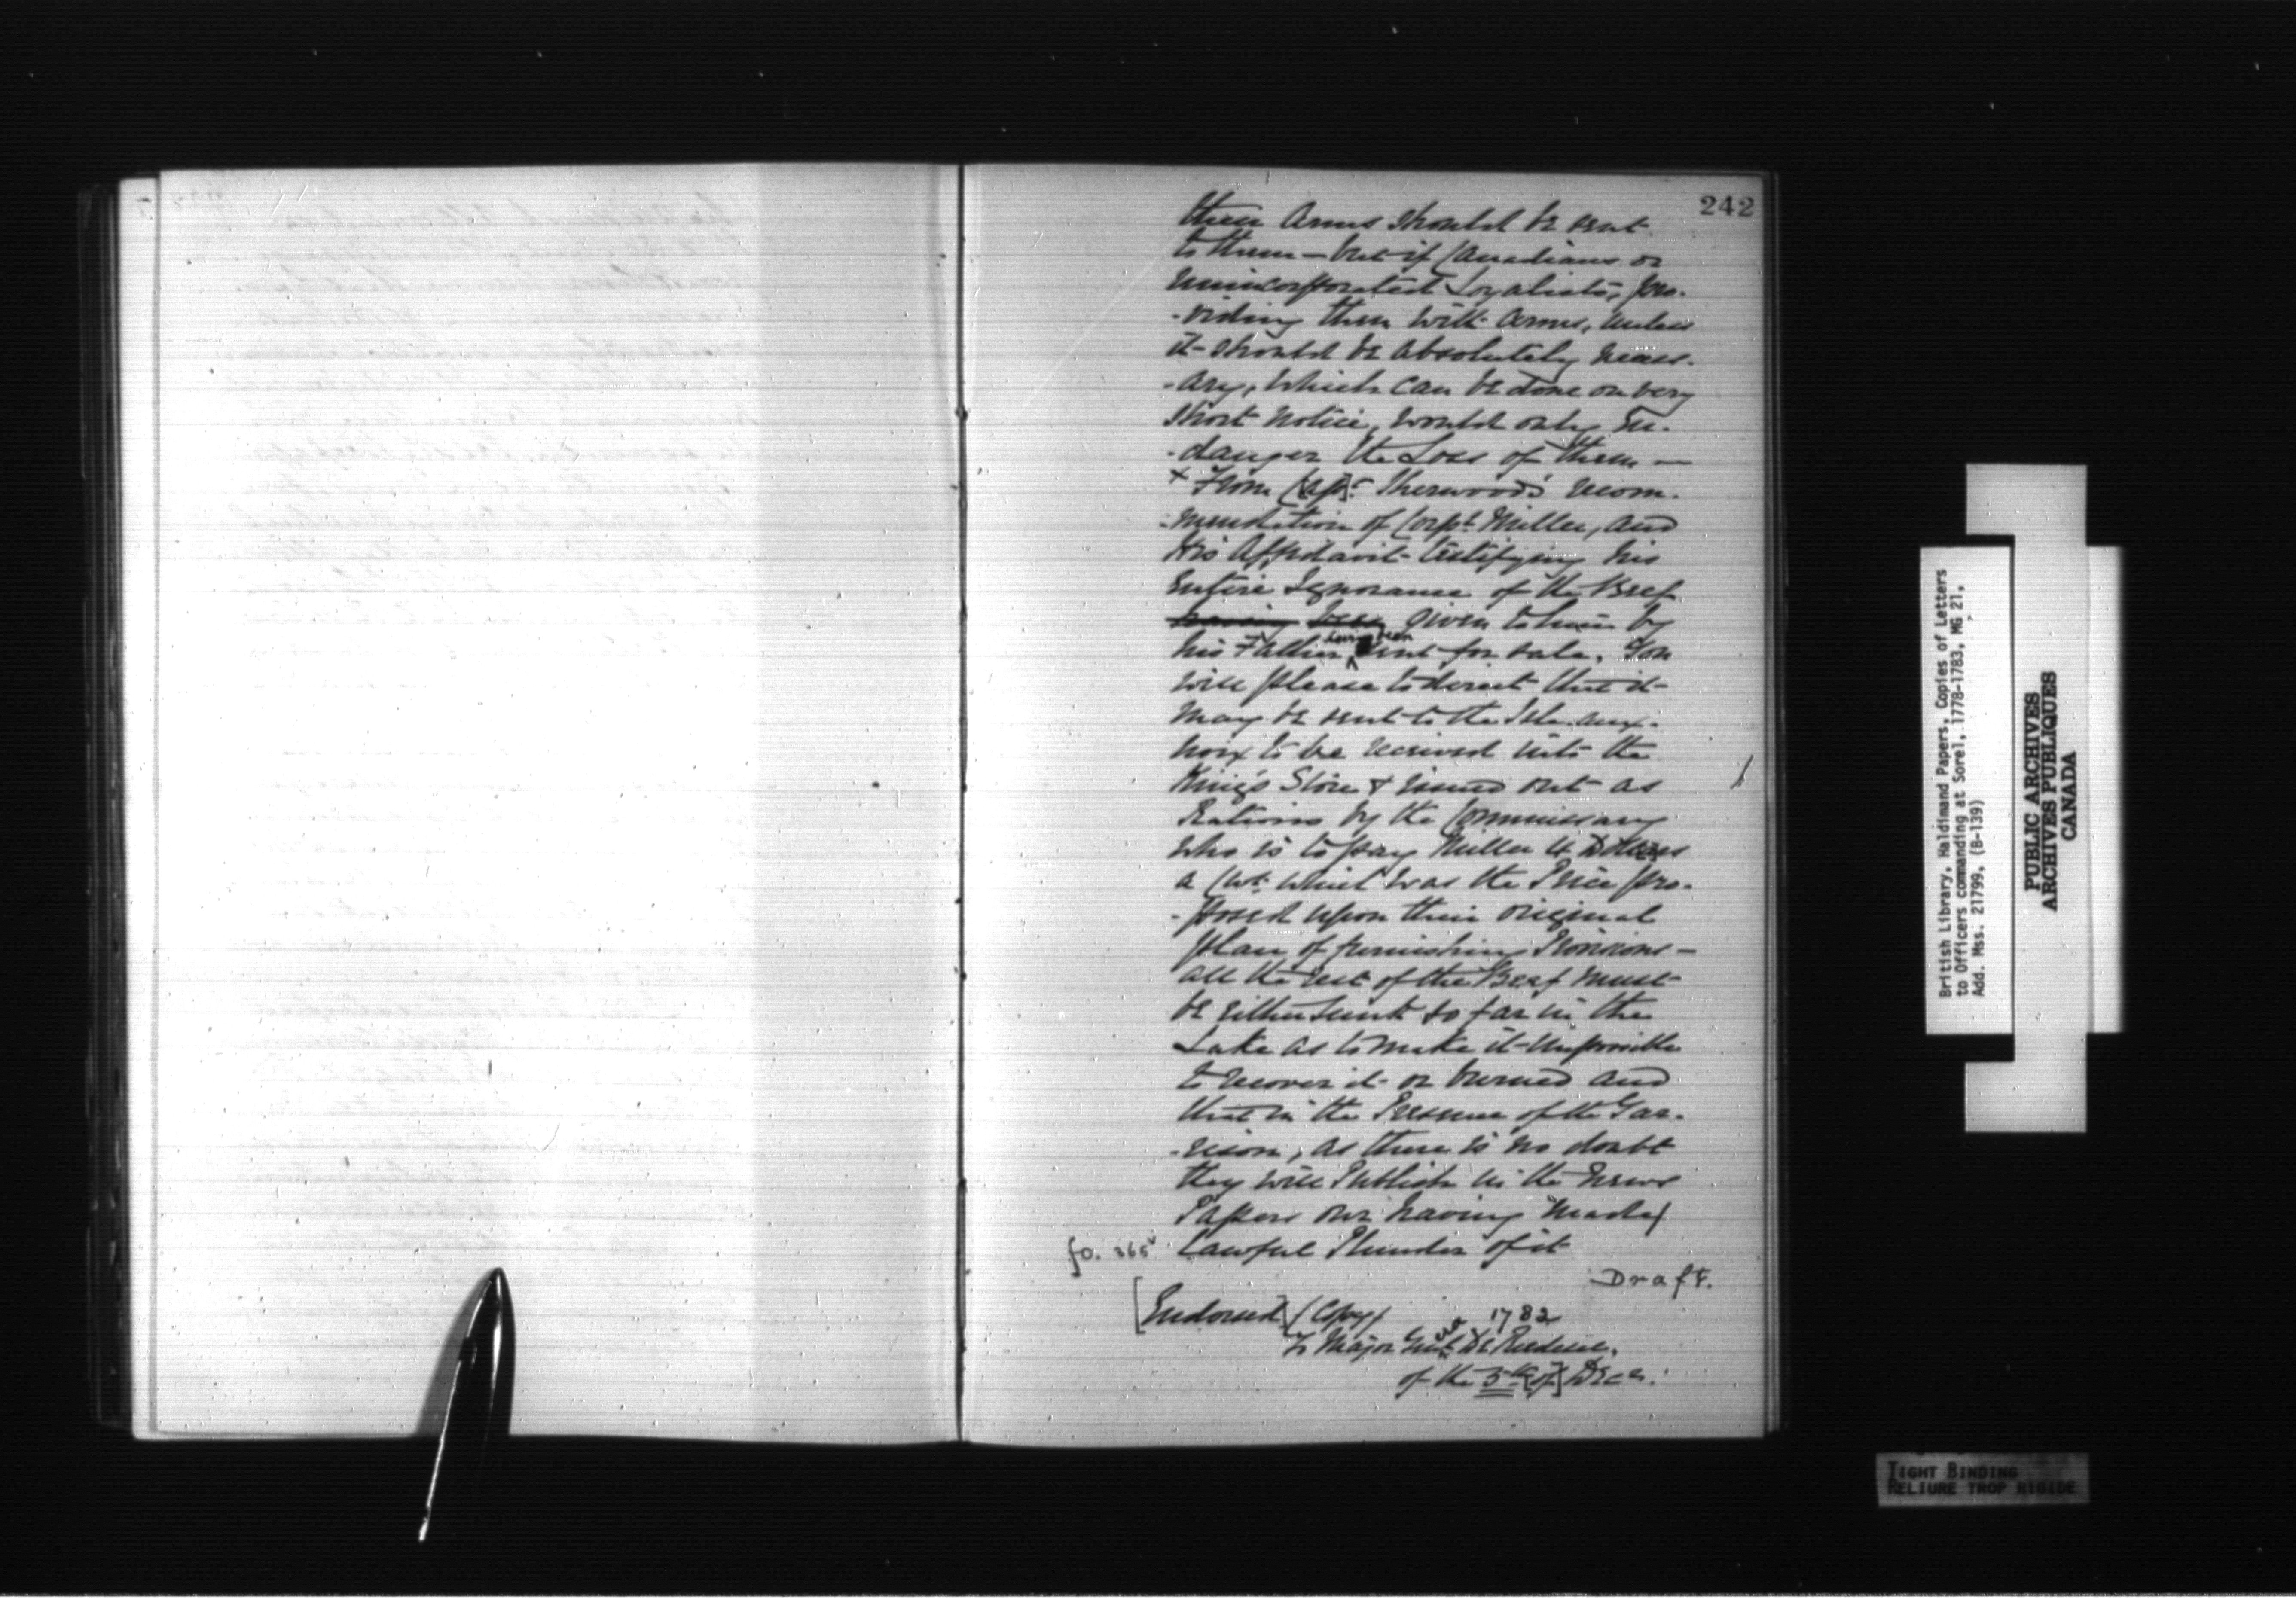 242
their Arms should be sent
to them – but if Canadians or
unincorporated Loyalists, pro-
-viding them with Arms, unless
it should be absolutely necess-
-ary, which can be done on very
short notice, would only En-
-danger the Loss of them —
+ From Cap[t]. Sherwood's recom-
-mendation of Corpl. Miller, and
His Affidavit testifying his
Entire Ignorance of the Beef
having been given to him by
having been
his Father sent for sale. You
will please to direct that it
may be sent to the Isle aux
noix to be received into the
King's Store & issued out as
Rations by the Commissary
who is to pay Miller 4 Dollars
a Cwt. which was the Price pro-
-posed upon their original
plan of furnishing Provisions –
all the rest of the Beef must
be either sunk so far in the
Lake as to make it Impossible
to recover it or burned and
that in the Presence of the Gar-
-rison, as there is no doubt
they will Publish in the News
Papers our having made
fo. 365v Lawful Plunder of it
Draft.
[Endorsed] (Copy) 1782
To Major Genl. De Riedesel,
of the 5th [of] Decr.
British Library, Haldimand Papers, Copies of Letters
to Officers commanding at Sorel, 1778-1783, MG 21,
Add. Mss. 21799, (B-139)
PUBLIC ARCHIVES
ARCHIVES PUBLIQUES
CANADA
TIGHT BINDING
RELIURE TROP RIGIDE